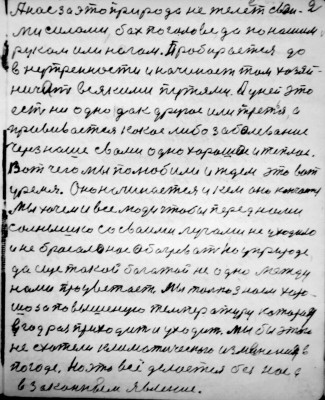 А нас за это природа не желет сваи- 2
ми силами, бах по голове да по нашим
рукам или нагам. Пробирается до
внутренности и начинает там хозяй-
ничат всякими путями. А у ней это
есть ни одно дак другое или третя, а
прививается какое либо заболевание
через наше свами одно хорошое и теплае.
Вот чего мы полюбили и ждем это вот
время. Оно начинается и кем оно
Мы хочем и все люди чтобы перед нами
солнышко со сваими лучами не уходило
и не бросало нас обогревать. Но у природе
да еще такой богатой не одно между
нами процветает. Мы только знаем хоро-
шо за повышенную температуру которая
в год раз приходит и уходит. Мы бы этого
не схотели климатического изменения в
погоде. Но это всё делается без нас
в законным явление.